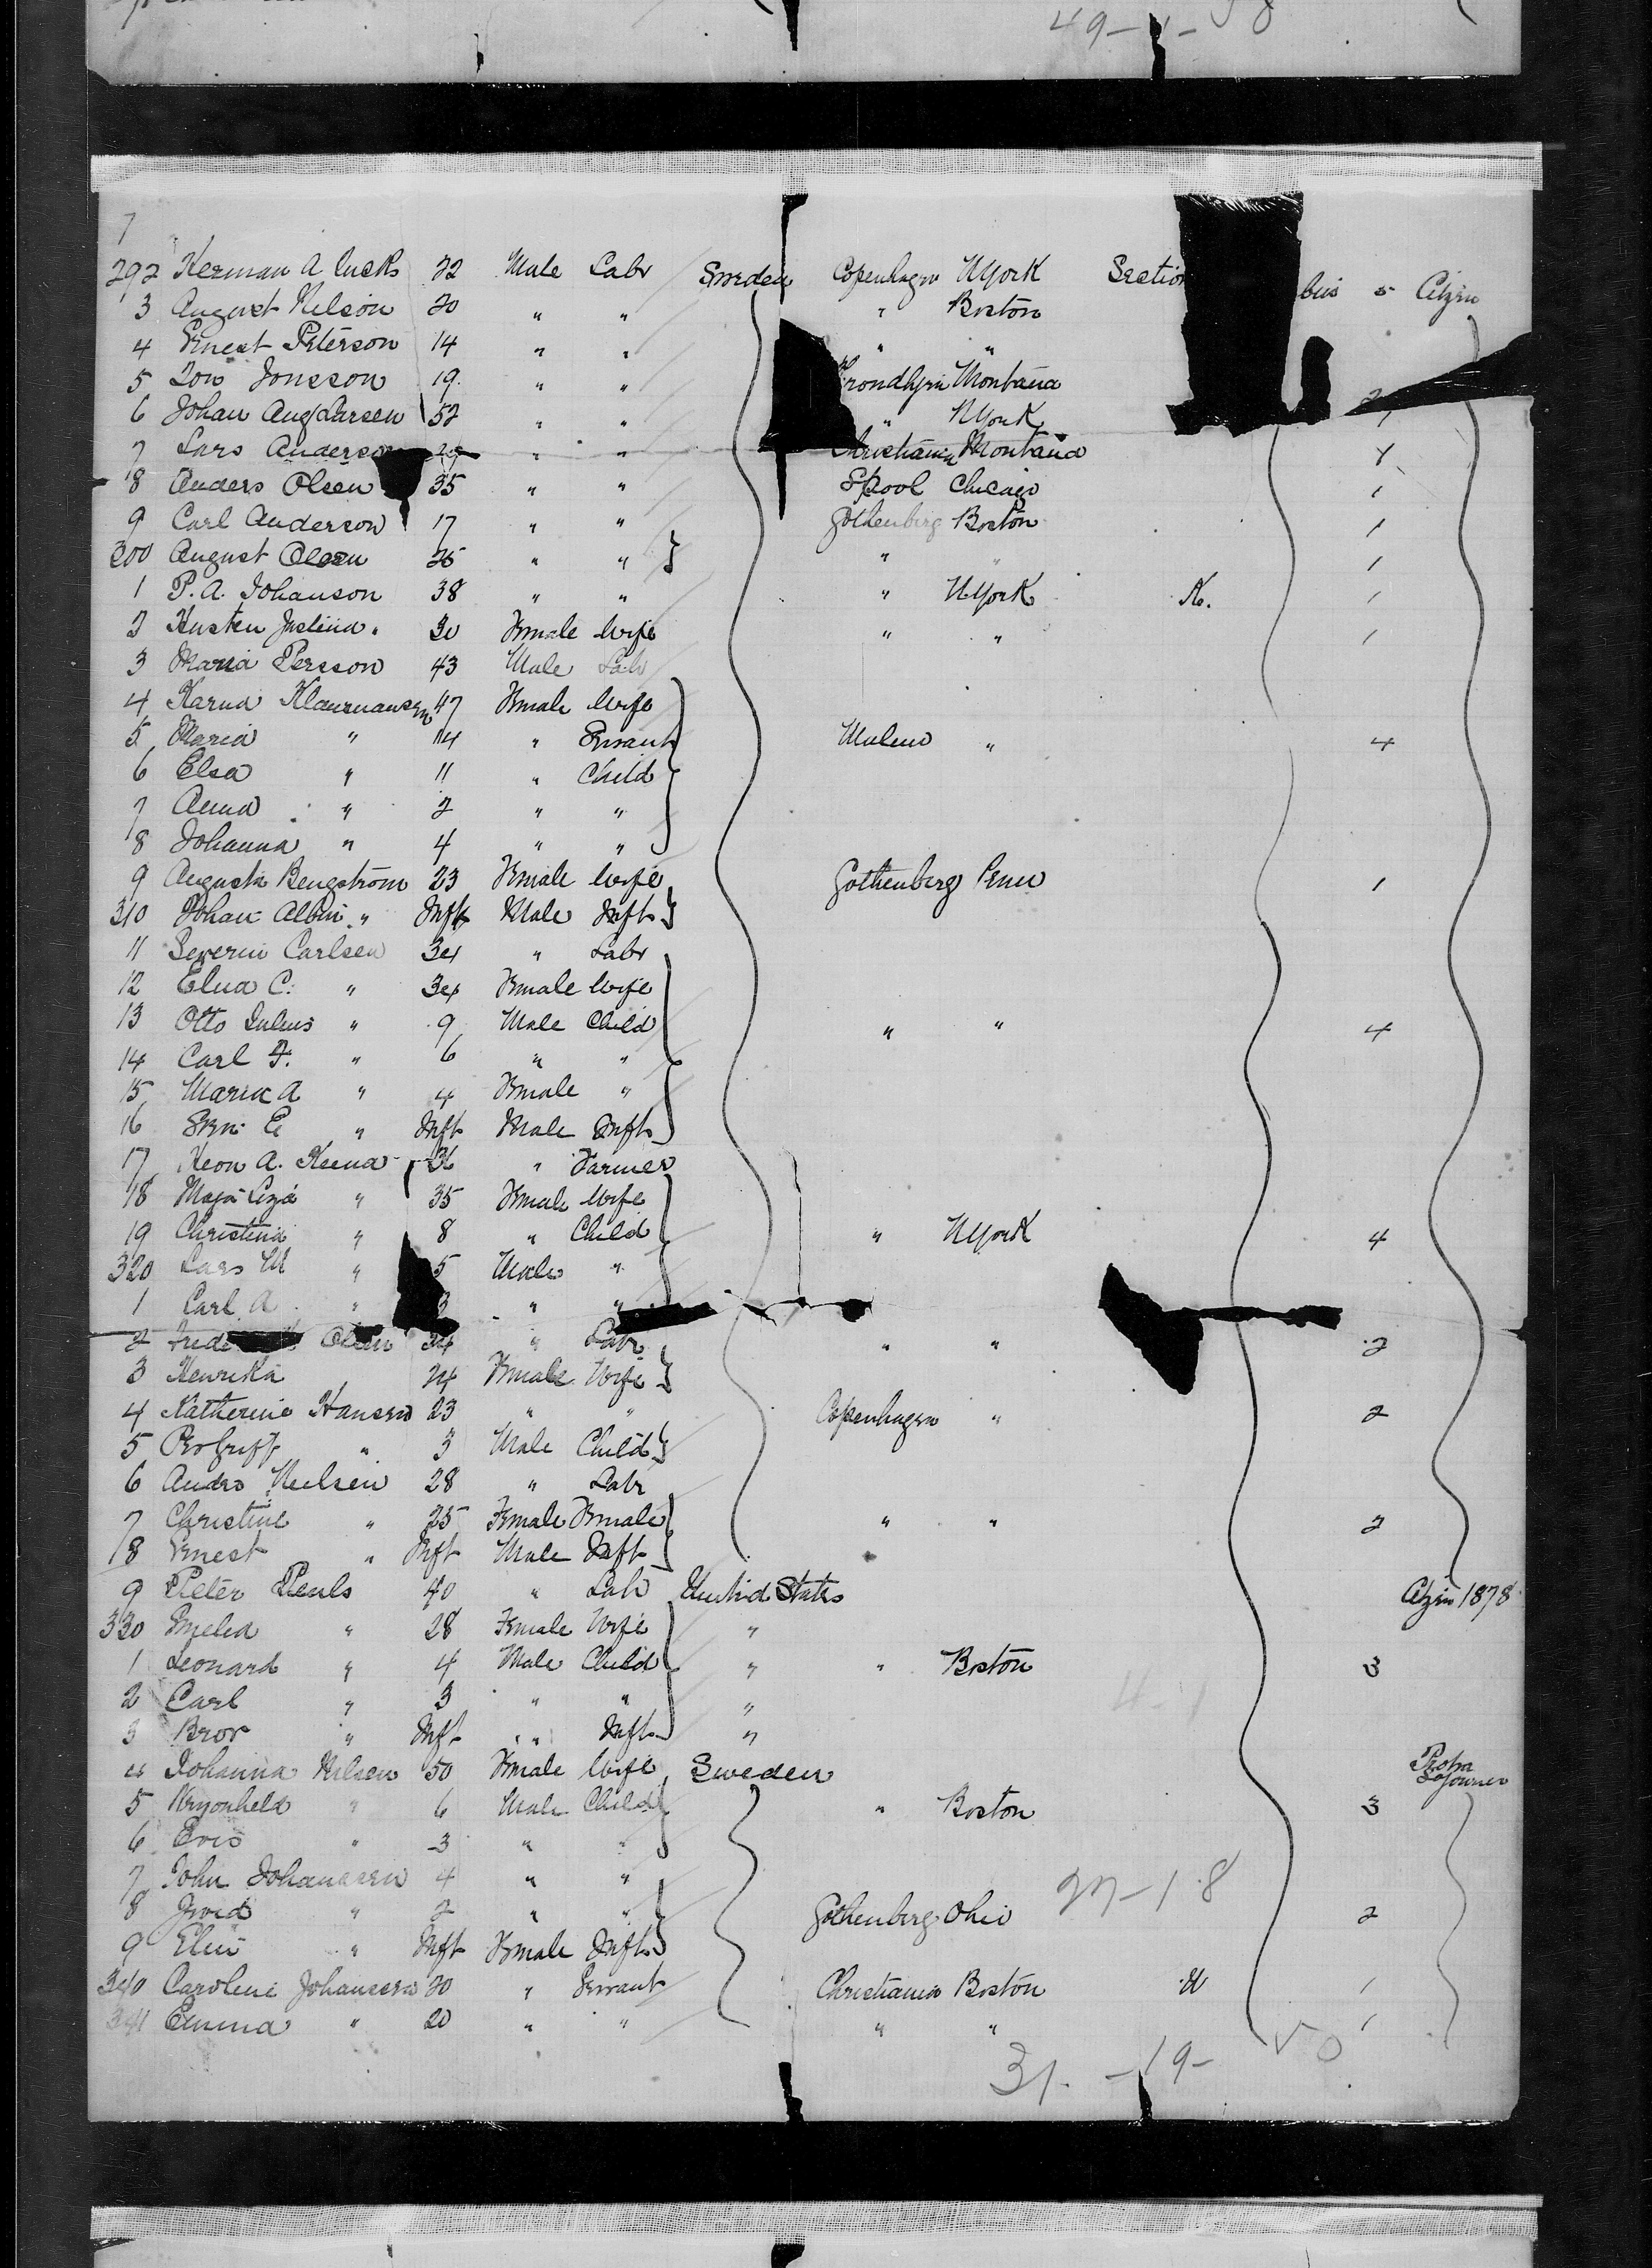 49-1-58
7
292 Herman A 22 Male Labr Sweden Copenhagen N York Section bin 5 Citzen
3 August Nelson 20 " " " Boston
4 Ernest Peterson 14 " " " "
5 Jonsson 19 " " Trondhjem Montana
6 Johan Aug Larsen 52 " " " N York 1
7 Lars Anderson " " Christiania Montana 1
8 Anders Olsen 35 " " L'pool Chicago 1
9 Carl Anderson 17 " " Gothenberg Boston 1
300 August Olsen " " " " 1
1 P. A. Johanson 38 " " " N York 1
2 Justina " 30 Female Wife " " 1
3 Maria Persson 43 Male Labr
4 47 Female Wife
5 Maria " 14 " Servant " 4
6 Elsa " 11 " Child
7 Anna " 2 " "
8 Johanna " 4 " "
9 Augusta Bengstrom 23 Female Wife Gothenberg Penn 1
310 Johan Albin " Inft Male Inft
11 Severin Carlsen 34 " Labr
12 Elna C. " 34 Female Wife
13 Otto Julius " 9 Male Child " " 4
14 Carl F. " 6 " "
15 Maria A " 4 Female "
16 E " Inft Male Inft
17 A. 36 " Farmer
18 Maja " 35 Female Wife
19 Christina " 8 " Child " N York 4
320 Lars M " 5 Male "
1 Carl A " 3 " "
2 Olsen 34 " Labr " " 2
3 Henrika 24 Female Wife
4 Katherine Hansen 23 " " Copenhagen " 2
5 " 3 Male Child
6 Andrs Neilsen 28 " Labr
7 Christine " 25 Female Female " " 2
8 Ernest " Inft Male Inft
9 Peter 40 " Labr United States Citzn 1878
330 " 28 Female Wife "
1 Leonard " 4 Male Child " " Boston 3
2 Carl " 3 " " "
3 Bror " Inft " Inft "
4 Johanna Nilsen 50 Female Wife Sweden Sojourner
5 " 6 Male Child " Boston 3
6 " 3 " "
7 John Johansen 4 " "
8 " 2 " " Gothenberg Ohio 2
9 Elin " Inft Female Inft
340 Caroline Johansen 20 " Servant Christiania Boston 1
341 Emma " 20 " " " " 1
31 -19- 50